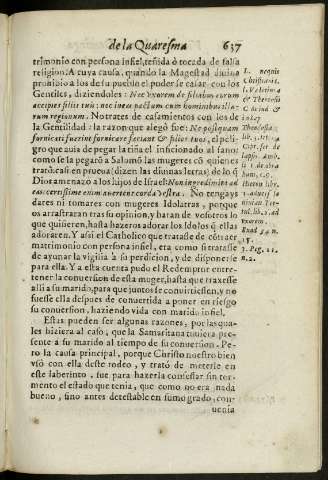 de la Quaresma 637
trimonio con persona infiel, teñida ò tocada de falsa
religion. A cuya causa, quando la Magestad diuina
prohibio a los de su pueblo el poder se casar con los
Gentiles, diziendoles: Nec vxorem de filiabus eorum
accipies filijs tuis: nec ineas pactum cum hominibus illa-
rum regionum. No trates de casamientos con los de
la Gentilidad: la razon que alegò fue: Ne postquam
fornicati fuerint fornicare faciant & filios tuos, el peli-
gro que auia de pegar la tiña el inficionado al sano:
como se la pegarõ a Salomõ las mugeres cõ quienes
tratò: casi en prouia (dizen las diuinas letras) de lo q̃
Dios amenazò a los hijos de Israel: Non ingredimini ad
eas: certissime enim auertent corda vestra. No tengays
dares ni tomares con mugeres Idolatras, porque
os arrastraran tras su opinion, y haran de vosotros lo
que quisieren, hasta hazeros adorar los Idolos q̃ ellas
adoraren. Y assi el Catholico que tratasse de cõtraer
matrimonio con persona infiel, era como si tratasse
de ayunar la vigilia a su perdicion, y de disponerse
para ella. Y a esta cuenta pudo el Redemptor entre-
tener la conuersion de esta muger, hasta que traxesse
alli a su marido, para que juntos se conuirtiessen, y no
fuesse ella despues de conuertida a poner en riesgo
su conuersion, haziendo vida con marido infiel.
Estas pueden ser algunas razones, por las qua-
les hiziera al caso, que la Samaritana tuuiera pre-
sente a su marido al tiempo de su conuersion. Pe-
ro la causa principal, porque Christo nuestro bien
vsò con ella deste rodeo, y tratò de meterle en
este laberinto, fue para hazerla confessar sin ter-
mento el estado que tenia, que como no era nada
bueno, sino antes detestable en sumo grado, con-
uenia
L. nequis
Christianis.
L. Valētinia
& Theodosij
C. de ind &
Theodosia.
lib. 3. titu.
Cypr. ser de
lapsis. Amb.
li 1 de abra
ham, c. 9.
Exod 34. n.
15.
3. Reg. 11.
n. 2.